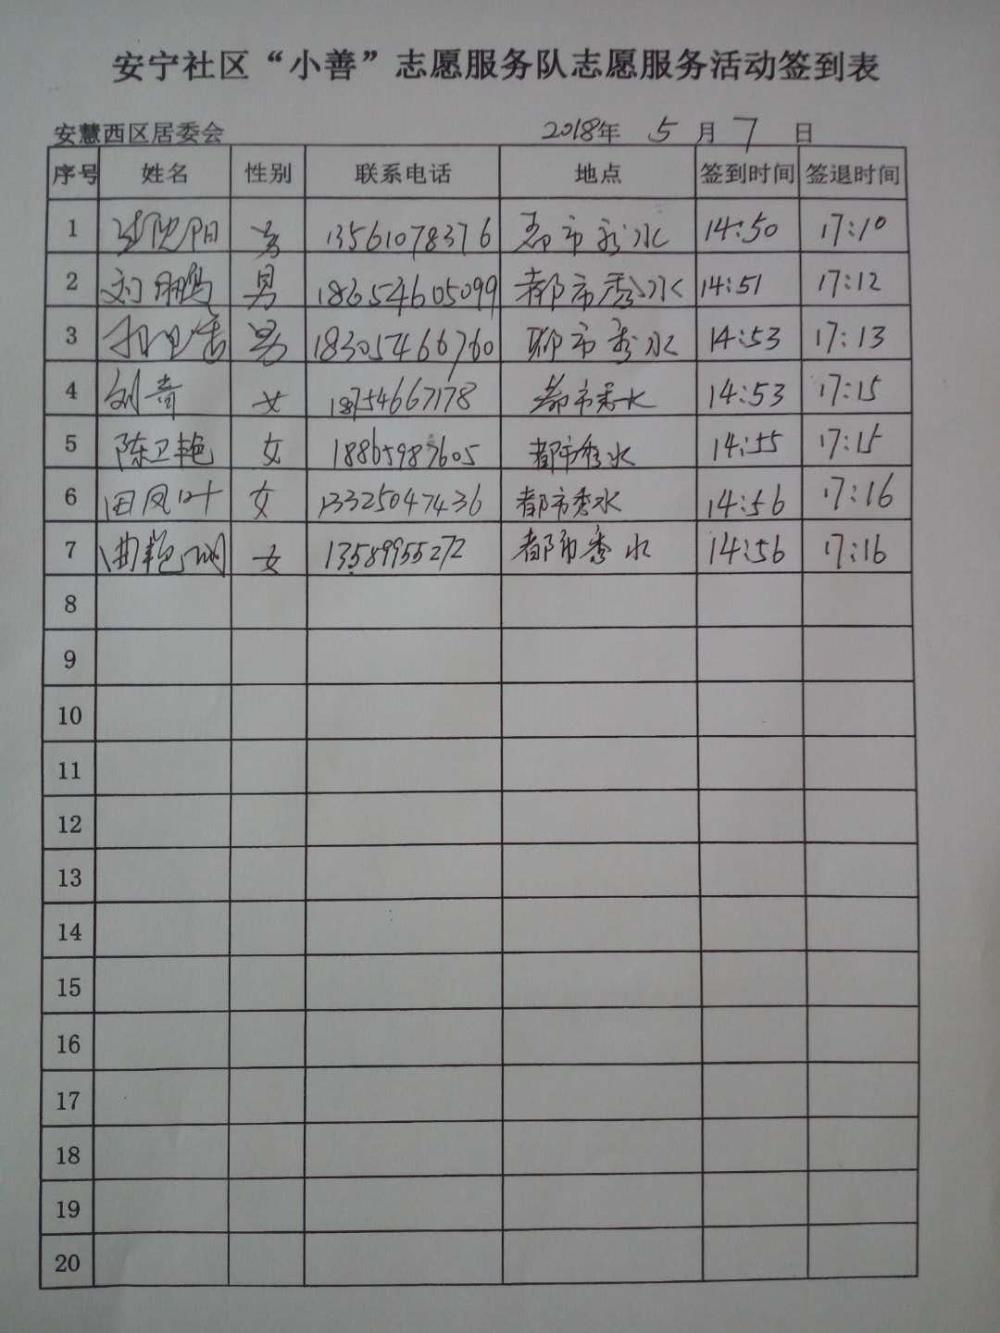 安宁社区“小善”志愿服务队志愿服务活动签到表
安慧西区居委会 2018年 5 月 7 日
序号 姓名 性别 联系电话 地点 签到时间 签退时间
1 阳 男 13561078376 都市秀水 14:50 17:10
2 刘鹏 男 18654605099 都市秀水 14:51 17:12
3 男 18305466760 都市秀水 14:53 17:13
4 刘青 女 18754667178 都市秀水 14:53 17:15
5 陈卫艳 女 18865987605 都市秀水 14:55 17:15
6 田凤叶 女 13325047436 都市秀水 14:56 17:16
7 曲艳丽 女 13589955272 都市秀水 14:56 17:16
8
9
10
11
12
13
14
15
16
17
18
19
20